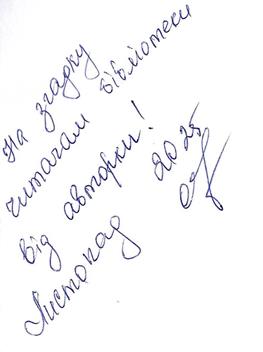 На згадку
читачам бібліотеки
від авторки!
Листопад 2025